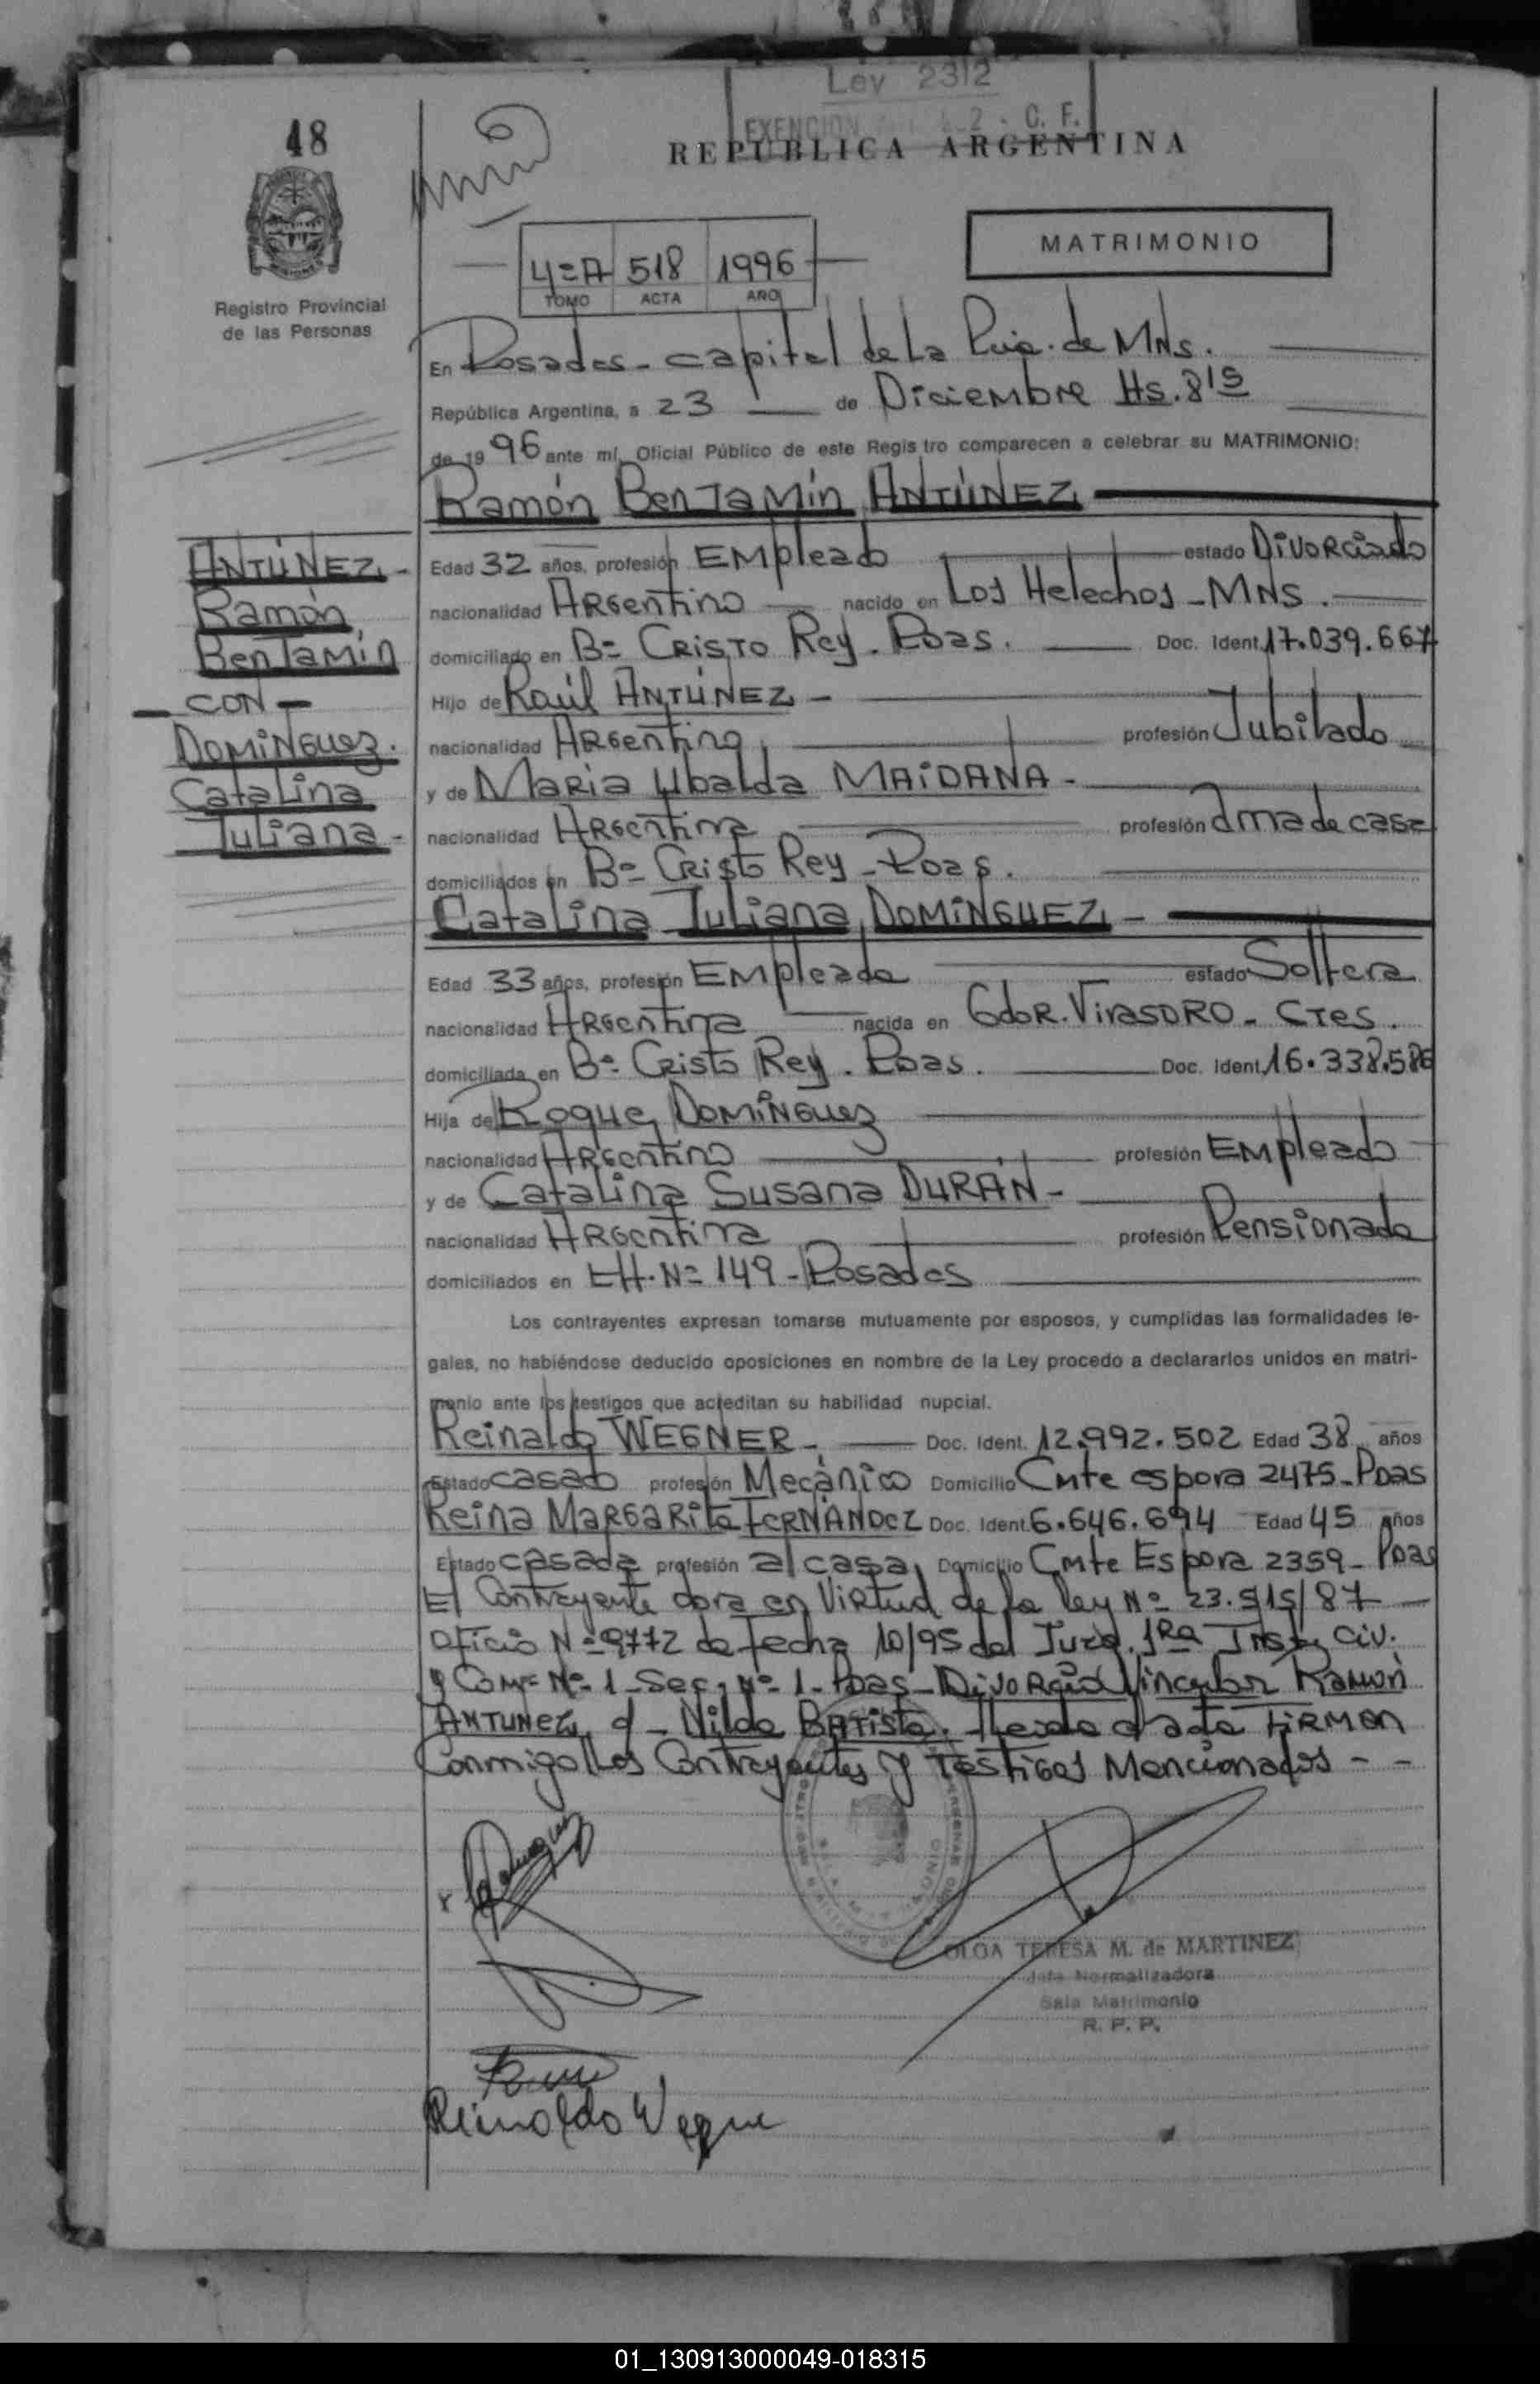 Ley 2312
EXENCION
C. F.
48
REPUBLICA ARGENTINA
MATRIMONIO
4=A 518 1996
TOMO ACTA AÑO
Registro Provincial
de las Personas
En Posadas - capital de La Pcia. de MNs.
República Argentina, a 23 de Diciembre Hs. 8 15
de 1996 ante mí, Oficial Público de este Registro comparecen a celebrar su MATRIMONIO:
Ramón Benjamín ANTÚNEZ
ANTÚNEZ -
Ramón
Benjamín
- CON -
DOMÍNGUEZ.
Catalina
Juliana -
Edad 32 años, profesión Empleado estado Divorciado
nacionalidad Argentino nacido en Los Helechos - MNS.
domiciliado en Bº Cristo Rey. Pdas. Doc. Ident. 17.039.667
Hijo de Raúl ANTÚNEZ -
nacionalidad Argentino, profesión Jubilado
y de María Ubalda MAIDANA -
nacionalidad Argentina profesión ama de casa
domiciliados en Bº Cristo Rey - Pdas.
Catalina Juliana DOMÍNGUEZ -
Edad 33 años, profesión Empleada estado Soltera
nacionalidad Argentina nacida en Gdor. Virasoro - Ctes.
domiciliada en Bº Cristo Rey. Pdas. Doc. Ident. 16.338.586
Hija de Roque DOMÍNGUEZ
nacionalidad Argentino profesión Empleado
y de Catalina Susana DURÁN -
nacionalidad Argentina profesión Pensionada
domiciliados en CH. Nº 149 - Posadas
Los contrayentes expresan tomarse mutuamente por esposos, y cumplidas las formalidades le-
gales, no habiéndose deducido oposiciones en nombre de la Ley procedo a declararlos unidos en matri-
monio ante los testigos que acreditan su habilidad nupcial.
Reinaldo WEGNER - Doc. Ident. 12.992.502 Edad 38 años
Estado casado profesión Mecánico Domicilio Cmte espora 2475 - Pdas
Reina Margarita FERNÁNDEZ Doc. Ident. 6.646.694 Edad 45 años
Estado casada profesión a/casa, Domicilio Cmte Espora 2359 - Pdas
El Contrayente obra en Virtud de la ley Nº 23.515/87
Oficio Nº 9772 de fecha 10/95 del Juzg. 1Ra Inst. Civ.
y Com= Nº 1 - Sec. Nº 1 - Pdas - Divorcio Vincular Ramón
ANTUNEZ c/ - Nilda BATISTA. Leída el acta Firman
Conmigo Los Contrayentes y Testigos Mencionados - -
OLGA TERESA M. de MARTINEZ
Jefa Normalizadora
Sala Matrimonio
R. P. P.
Reinaldo Wegner
01_130913000049-018315